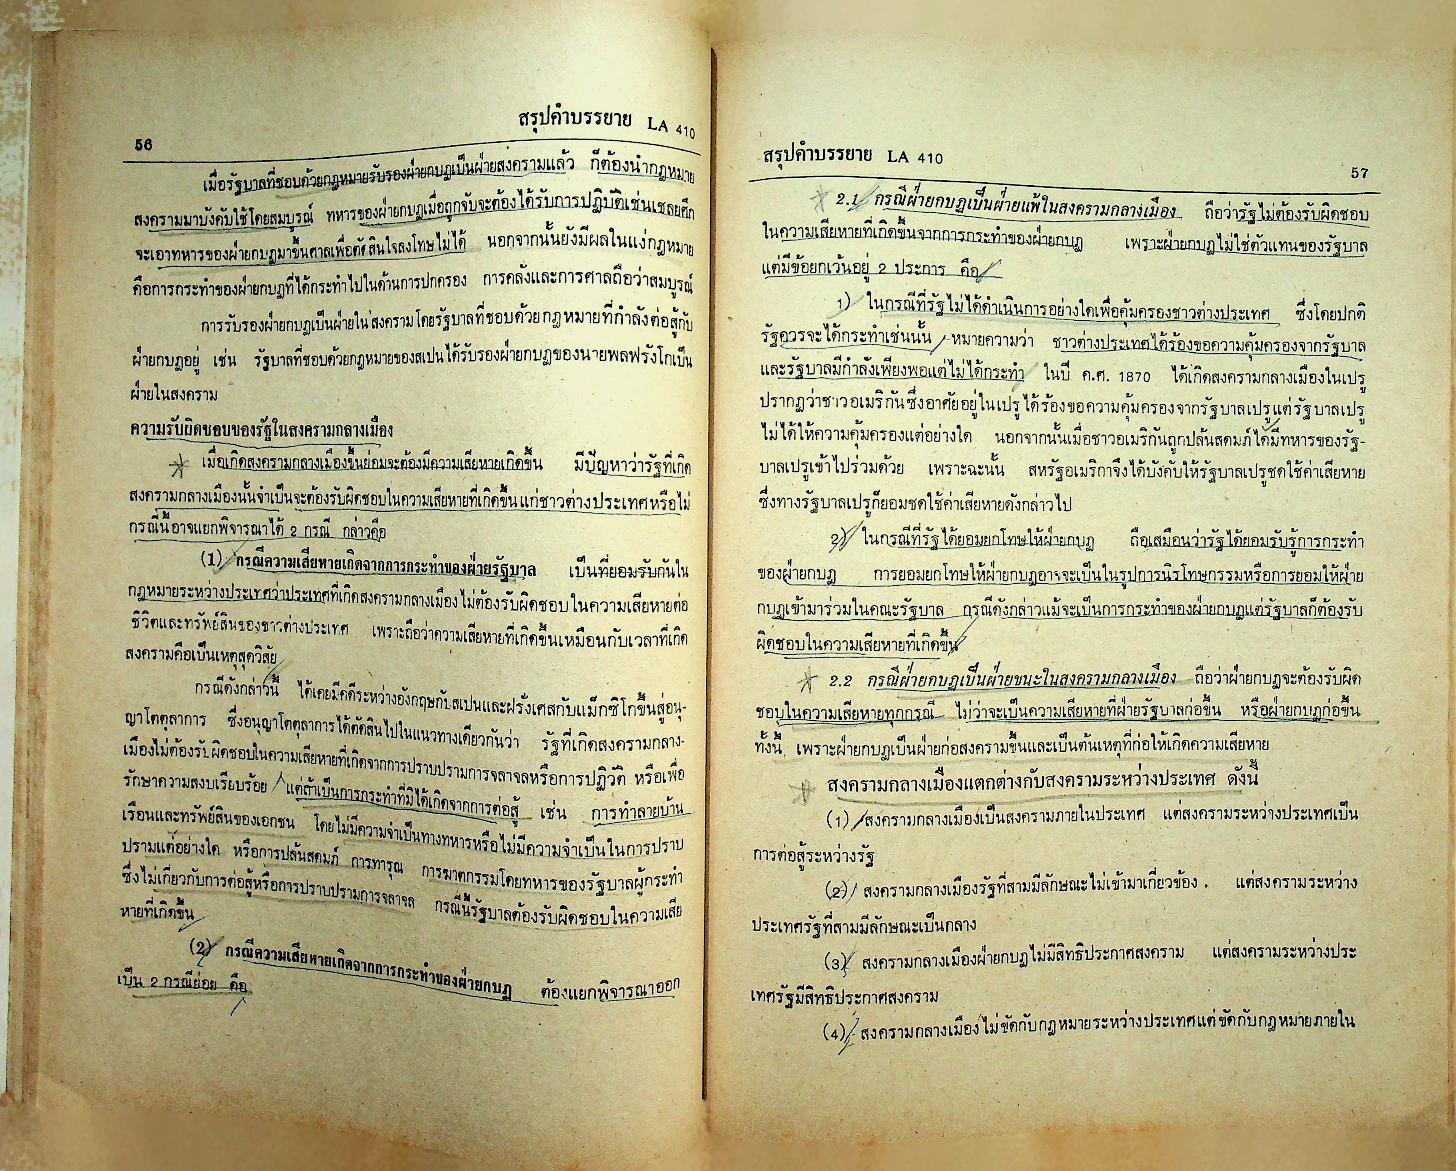 สรุปคำบรรยาย LA 410
56
เมื่อรัฐบาลที่ชอบด้วยกฎหมายรับรองฝ่ายกบฏเป็นฝ่ายสงครามแล้ว ก็ต้องนำกฎหมาย
สงครามมาบังคับใช้โดยสมบูรณ์ ทหารของฝ่ายกบฏเมื่อถูกจับจะต้องได้รับการปฏิบัติเช่นเชลยศึก
จะเอาทหารของฝ่ายกบฏมาขึ้นศาลเพื่อตัดสินใจลงโทษไม่ได้ นอกจากนั้นยังมีผลในแง่กฎหมาย
คือการกระทำของฝ่ายกบฏที่ได้กระทำไปในด้านการปกครอง การคลังและการศาลถือว่าสมบูรณ์
การรับรองฝ่ายกบฏเป็นฝ่ายในสงครามโดยรัฐบาลที่ชอบด้วยกฎหมายที่กำลังต่อสู้กับ
ฝ่ายกบฏอยู่ เช่น รัฐบาลที่ชอบด้วยกฎหมายของสเปนได้รับรองฝ่ายกบฏของนายพลฟรังโกเป็น
ฝ่ายในสงคราม
ความรับผิดชอบของรัฐในสงครามกลางเมือง
เมื่อเกิดสงครามกลางเมืองขึ้นย่อมจะต้องมีความเสียหายเกิดขึ้น มีปัญหาว่ารัฐที่เกิด
สงครามกลางเมืองนั้นจำเป็นจะต้องรับผิดชอบในความเสียหายที่เกิดขึ้นแก่ชาวต่างประเทศหรือไม่
กรณีนี้อาจแยกพิจารณาได้ 2 กรณี กล่าวคือ
(1) กรณีความเสียหายเกิดจากการกระทำของฝ่ายรัฐบาล เป็นที่ยอมรับกันใน
กฎหมายระหว่างประเทศว่าประเทศที่เกิดสงครามกลางเมืองไม่ต้องรับผิดชอบในความเสียหายต่อ
ชีวิตและทรัพย์สินของชาวต่างประเทศ เพราะถือว่าความเสียหายที่เกิดขึ้นเหมือนกับเวลาที่เกิด
สงครามคือเป็นเหตุสุดวิสัย
กรณีดังกล่าวนี้ ได้เคยมีคดีระหว่างอังกฤษกับสเปนและฝรั่งเศสกับแม็กซิโกขึ้นสู่อนุ-
ญาโตตุลาการ ซึ่งอนุญาโตตุลาการได้ตัดสินไปในแนวทางเดียวกันว่า รัฐที่เกิดสงครามกลาง-
เมืองไม่ต้องรับผิดชอบในความเสียหายที่เกิดจากการปราบปรามการจลาจลหรือการปฏิวัติ หรือเพื่อ
รักษาความสงบเรียบร้อย แต่ถ้าเป็นการกระทำที่มิได้เกิดจากการต่อสู้ เช่น การทำลายบ้าน
เรือนและทรัพย์สินของเอกชน โดยไม่มีความจำเป็นทางทหารหรือไม่มีความจำเป็นในการปราบ
ปรามแต่อย่างใด หรือการปล้นสดมภ์ การทารุณ การฆาตกรรมโดยทหารของรัฐบาลผู้กระทำ
ซึ่งไม่เกี่ยวกับการต่อสู้หรือการปราบปรามการจลาจล กรณีนี้รัฐบาลต้องรับผิดชอบในความเสีย
หายที่เกิดขึ้น
(2) กรณีความเสียหายเกิดจากการกระทำของฝ่ายกบฏ ต้องแยกพิจารณาออก
เป็น 2 กรณีย่อย คือ
สรุปคำบรรยาย LA 410
57
2.1 กรณีฝ่ายกบฏเป็นฝ่ายแพ้ในสงครามกลางเมือง ถือว่ารัฐไม่ต้องรับผิดชอบ
ในความเสียหายที่เกิดขึ้นจากการกระทำของฝ่ายกบฏ เพราะฝ่ายกบฏไม่ใช่ตัวแทนของรัฐบาล
แต่มีข้อยกเว้นอยู่ 2 ประการ คือ
1) ในกรณีที่รัฐไม่ได้ดำเนินการอย่างใดเพื่อคุ้มครองชาวต่างประเทศ ซึ่งโดยปกติ
รัฐควรจะได้กระทำเช่นนั้น หมายความว่า ชาวต่างประเทศได้ร้องขอความคุ้มครองจากรัฐบาล
และรัฐบาลมีกำลังเพียงพอแต่ไม่ได้กระทำ ในปี ค.ศ. 1870 ได้เกิดสงครามกลางเมืองในเปรู
ปรากฏว่าชาวอเมริกันซึ่งอาศัยอยู่ในเปรูได้ร้องขอความคุ้มครองจากรัฐบาลเปรูแต่รัฐบาลเปรู
ไม่ได้ให้ความคุ้มครองแต่อย่างใด นอกจากนั้นเมื่อชาวอเมริกันถูกปล้นสดมภ์ได้มีทหารของรัฐ-
บาลเปรูเข้าไปร่วมด้วย เพราะฉะนั้น สหรัฐอเมริกาจึงได้บังคับให้รัฐบาลเปรูชดใช้ค่าเสียหาย
ซึ่งทางรัฐบาลเปรูก็ยอมชดใช้ค่าเสียหายดังกล่าวไป
2) ในกรณีที่รัฐได้ยอมยกโทษให้ฝ่ายกบฏ ถือเสมือนว่ารัฐได้ยอมรับรู้การกระทำ
ของฝ่ายกบฏ การยอมยกโทษให้ฝ่ายกบฏอาจจะเป็นในรูปการนิรโทษกรรมหรือการยอมให้ฝ่าย
กบฏเข้ามาร่วมในคณะรัฐบาล กรณีดังกล่าวแม้จะเป็นการกระทำของฝ่ายกบฏแต่รัฐบาลก็ต้องรับ
ผิดชอบในความเสียหายที่เกิดขึ้น
2.2 กรณีฝ่ายกบฏเป็นฝ่ายชนะในสงครามกลางเมือง ถือว่าฝ่ายกบฏจะต้องรับผิด
ชอบในความเสียหายทุกกรณี ไม่ว่าจะเป็นความเสียหายที่ฝ่ายรัฐบาลก่อขึ้น หรือฝ่ายกบฏก่อขึ้น
ทั้งนี้ เพราะฝ่ายกบฏเป็นฝ่ายก่อสงครามขึ้นและเป็นต้นเหตุที่ก่อให้เกิดความเสียหาย
สงครามกลางเมืองแตกต่างกับสงครามระหว่างประเทศ ดังนี้
(1) สงครามกลางเมืองเป็นสงครามภายในประเทศ แต่สงครามระหว่างประเทศเป็น
การต่อสู้ระหว่างรัฐ
(2) สงครามกลางเมืองรัฐที่สามมีลักษณะไม่เข้ามาเกี่ยวข้อง . แต่สงครามระหว่าง
ประเทศรัฐที่สามมีลักษณะเป็นกลาง
(3) สงครามกลางเมืองฝ่ายกบฏไม่มีสิทธิประกาศสงคราม แต่สงครามระหว่างประ
เทศรัฐมีสิทธิประกาศสงคราม
(4) สงครามกลางเมืองไม่ขัดกับกฎหมายระหว่างประเทศแต่ขัดกับกฎหมายภายใน